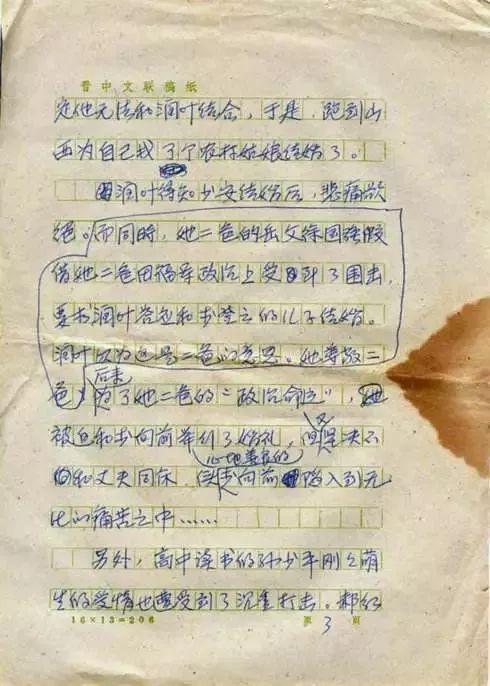 晋中文联稿纸
定他无法和润叶结合，于是，跑到山
西为自己找了个农村姑娘结婚了。
润叶得知少安结婚后，悲痛欲
绝。而同时，她二爸的岳父徐国强假
借她二爸田福军政治上受到了围击，
要求润叶答应和李登云的儿子结婚。
润叶以为这是二爸的意思。她尊敬二
后来
爸，为了她二爸的“政治命运”，
又
被迫和李向前举行了婚礼，但坚决不
心地善良的
和丈夫同床，使李向前陷入到无
比的痛苦之中……
另外，高中读书的孙少平刚刚萌
生的爱情也遭受到了沉重打击。郝红
16×13=206 3 页